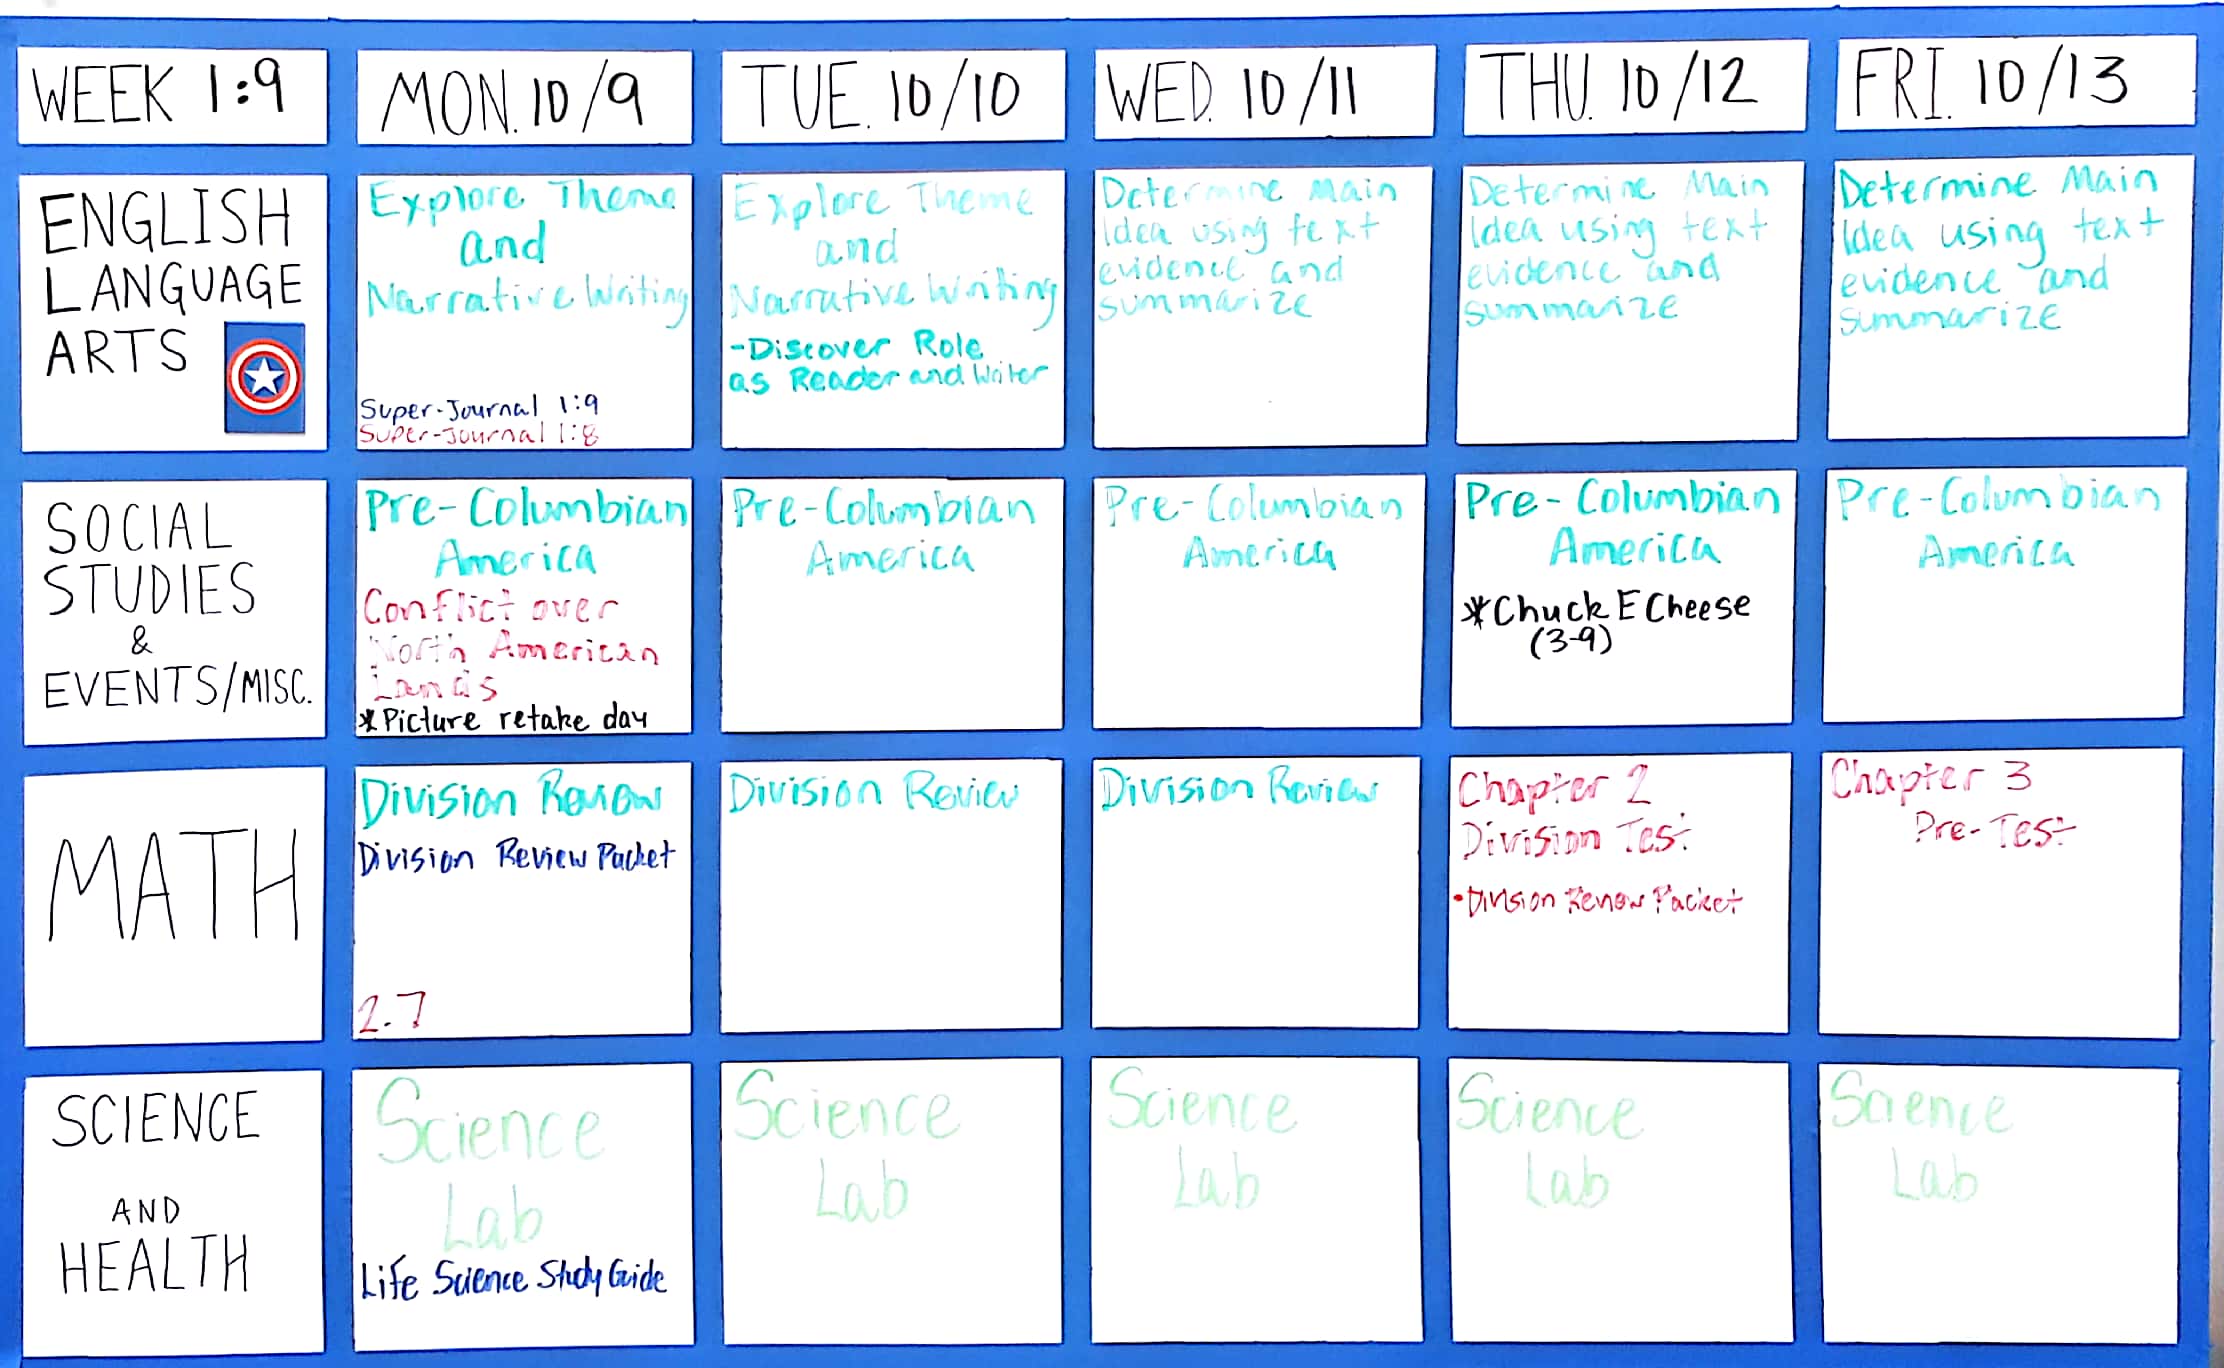 WEEK 1:9
MON. 10/9
TUE. 10/10
WED. 10/11
THU. 10/12
FRI. 10/13
ENGLISH
LANGUAGE
ARTS
Explore Theme
and
Narrative Writing
Super-Journal 1:9
Super-Journal 1:8
Explore Theme
and
Narrative Writing
-Discover Role
as Reader and Writer
Determine Main
Idea using text
evidence and
summarize
Determine Main
Idea using text
evidence and
summarize
Determine Main
Idea using text
evidence and
summarize
SOCIAL
STUDIES
&
EVENTS/MISC.
Pre-Columbian
America
Conflict over
North American
Lands
*Picture retake day
Pre-Columbian
America
Pre-Columbian
America
Pre-Columbian
America
*Chuck E Cheese
(3-9)
Pre-Columbian
America
MATH
Division Review
Division Review Packet
2.7
Division Review
Division Review
Chapter 2
Division Test
•Division Review Packet
Chapter 3
Pre-Test
SCIENCE
AND
HEALTH
Science
Lab
Life Science Study Guide
Science
Lab
Science
Lab
Science
Lab
Science
Lab